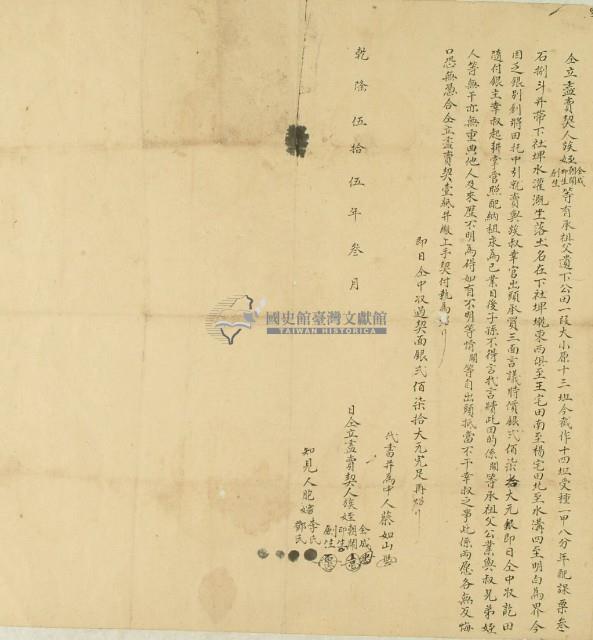 仝立盡賣契人族姪朝蘭金成即生創生等有承祖父遺下公田一段大小原十三坵今截作十四坵受種一甲八分年配課粟叁
石捌斗并帶下社埤水灌溉坐落土名在下社埤墘東西俱至王宅田南至楊宅田北至水溝四至明白為界今
因乏銀別創將田托中引就賣與族叔幸官出頭承買三面言議時價銀弍佰柒拾大元銀即日仝中收訖田
隨付銀主幸叔起耕掌管照配納租永為己業日後子孫不得言找言贖此田的係蘭等承祖父公業與叔兄弟姪
人等無干亦無重典他人及來歷不明為碍如有不明等情蘭等自出頭抵當不干幸叔之事此係兩愿各無反悔
口恐無憑合仝立盡賣契壹紙并繳上手契付執為炤
即日仝中收過契面銀弍佰柒拾大元完足再炤
代書并為中人蔡如山
日仝立盡賣契人族姪朝蘭金成即生創生
知見人胞嬸李氏鄭氏
乾隆伍拾伍年叁月
國史館臺灣文獻館
TAIWAN HISTORICA